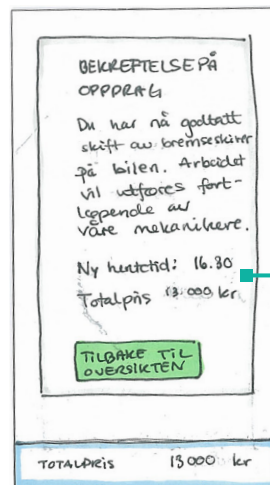 BEKREFTELSE PÅ
OPPDRAG
Du har nå godtatt
skift av bremseskiver
på bilen. Arbeidet
vil utføres fort-
løpende av
våre mekanikere.
Ny hentetid: 16.30
Totalpris 13.000 kr
TILBAKE TIL
OVERSIKTEN
TOTALPRIS 13000 kr